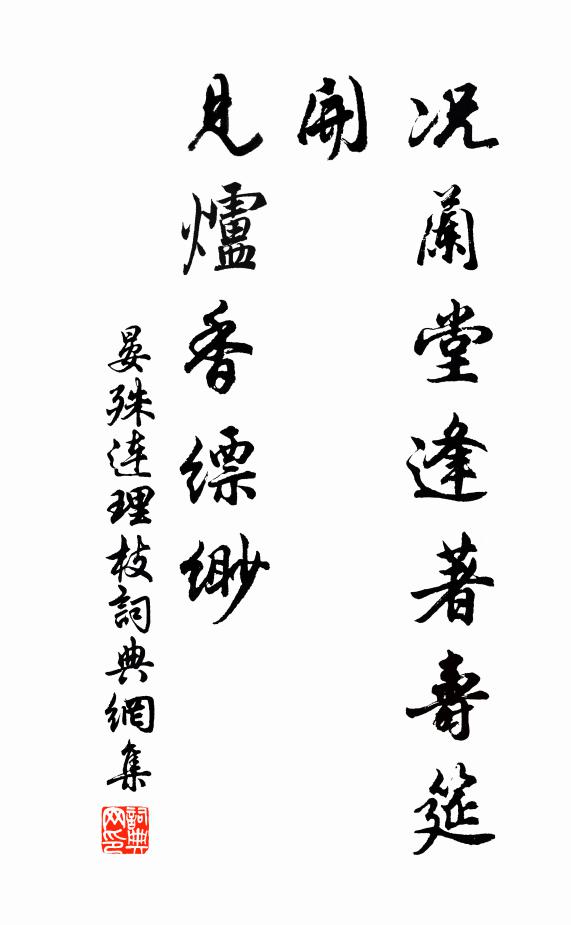 況蘭堂逢著壽筵
開
見爐香縹緲
晏殊連理枝詞典網集
詞典網印